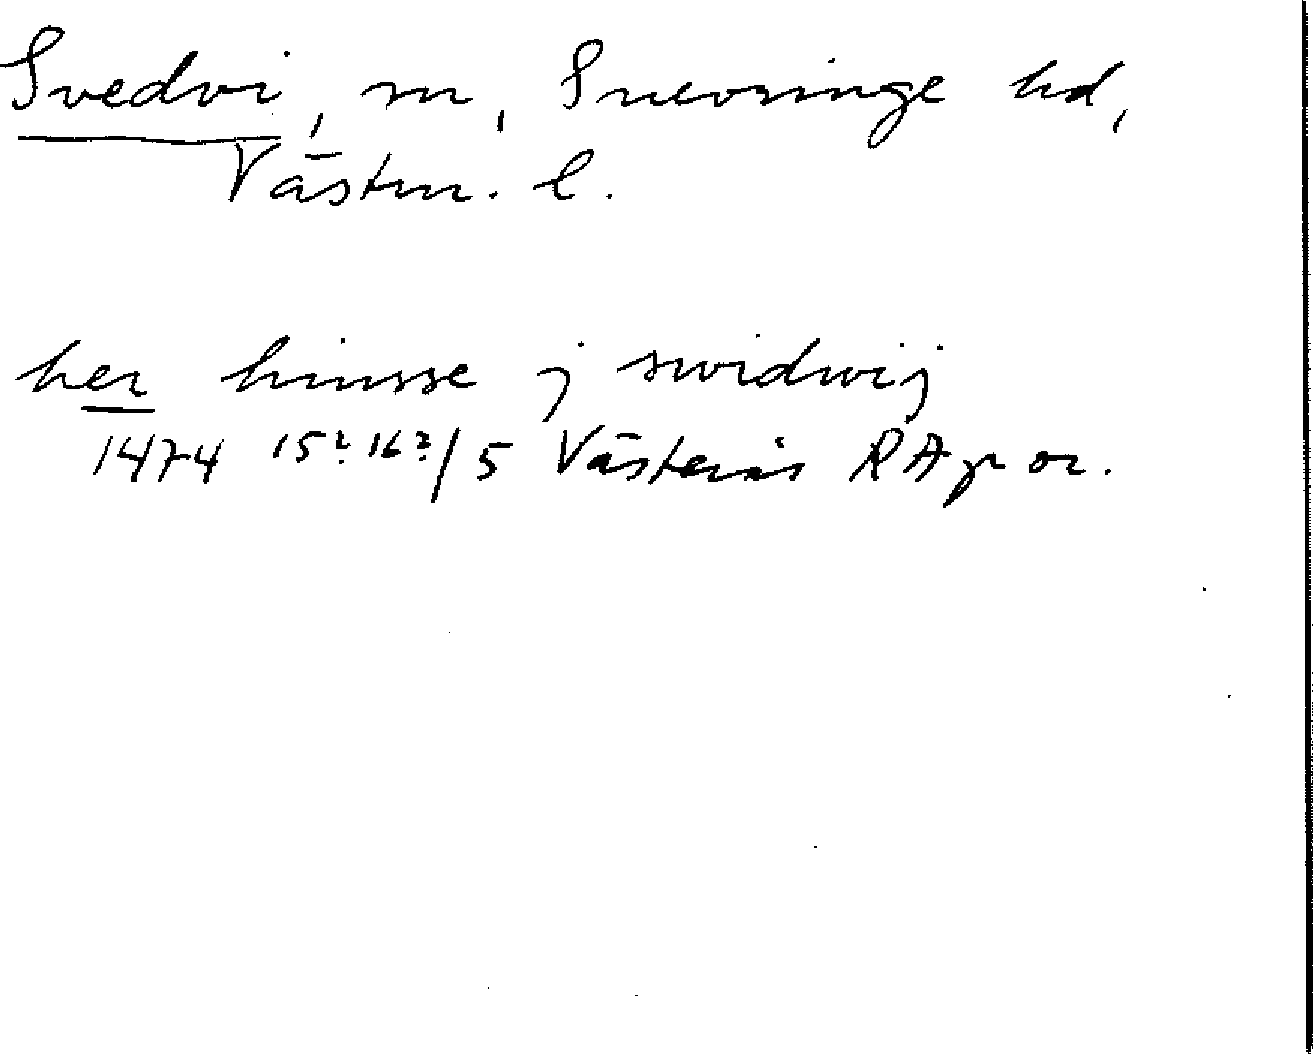 Svedvi, sn, Snevringe hd,
Västm. l.
her hinsse j swidwij
1474 15? 16?/5 Västerås RAp or.